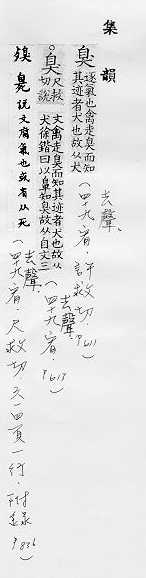 集韻
臭 逐氣也禽走臭而知其迹者犬也故从犬(去聲、四十九宥.許救切.P611)
。臭 尺救切說文禽走臭而知其迹者犬也故从犬徐鍇曰以鼻知臭故从自文三(去聲、四十九、宥.P613)
殠 臰 說文腐气也或省从死(去聲、四十九宥.尺救切.天一四頁一行.附錄P836)